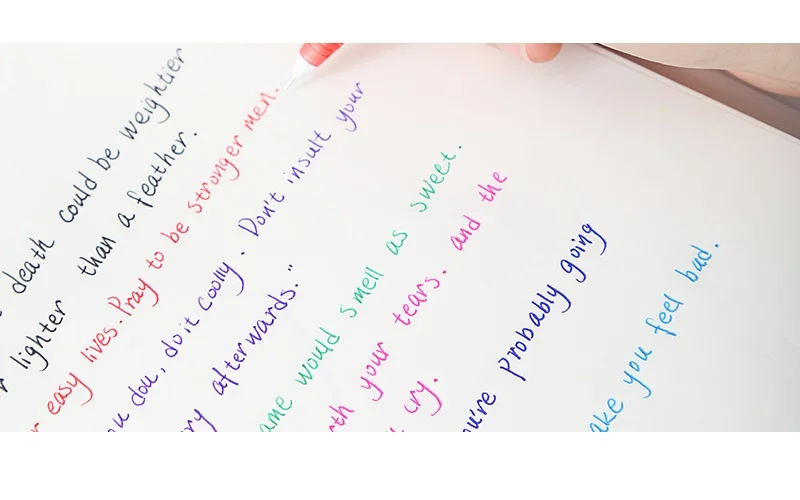 death could be weightier
lighter than a feather.
easy lives. Pray to be stronger men.
you dou, do it coolly. Don't insult your
afterwards."
ame would smell as sweet.
rth your tears. and the
cry.
ou're probably going
ake you feel bad.